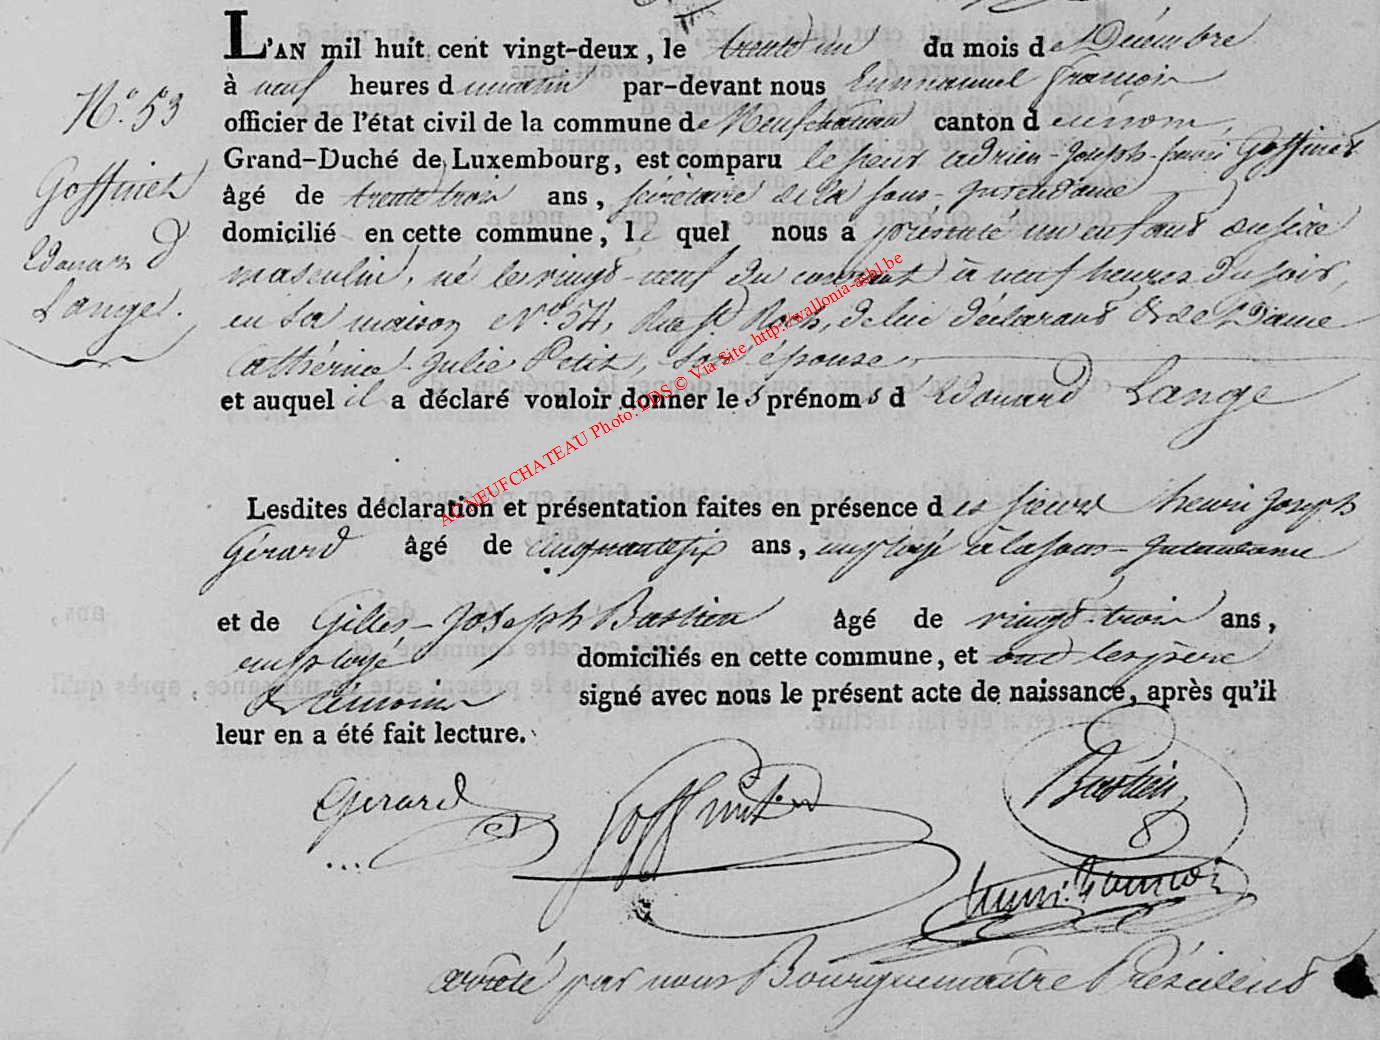 L'AN mil huit cent vingt-deux, le trente un du mois de Décembre
à neuf heures du matin par-devant nous Emmanuel François
N.° 53
officier de l'état civil de la commune de Neufchateau canton du nom,
Grand-Duché de Luxembourg, est comparu le sieur adrien-Joseph Goffinet
Goffinet
âgé de trente trois ans, sécrétaire de la Sous-Intendance
domicilié en cette commune, le quel nous a présenté un enfant du sexe
Edouard
masculin, né le vingt-neuf du courant à neuf heures du soir,
Lange.
en sa maison N.° 54, Rue St Roch, de lui déclarant & de Dame
Cathérine-Julie Petit, son épouse,
et auquel il a déclaré vouloir donner les prénoms d'Edouard Lange
AC NEUFCHATEAU Photo: LDS © Via Site http://wallonia-asbl.be
Lesdites déclaration et présentation faites en présence des sieurs henri Joseph
Gérard âgé de cinquante six ans, employé à la sous-Intendance
et de Gilles-Joseph Bastien âgé de vingt-trois ans,
employé domiciliés en cette commune, et ont les père
& témoins signé avec nous le présent acte de naissance, après qu'il
leur en a été fait lecture.
Gerard Goffinet Bastien
François
arrêté par nous Bourguemaître Président